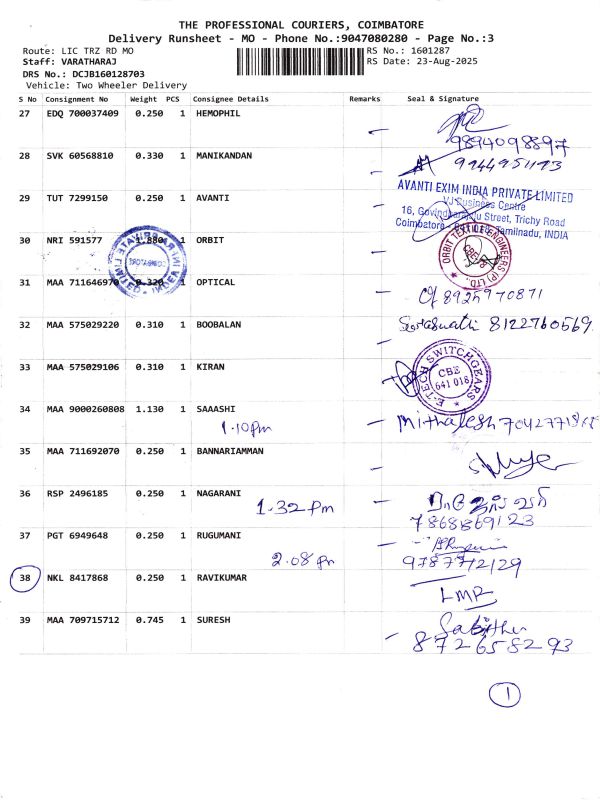 THE PROFESSIONAL COURIERS, COIMBATORE
Delivery Runsheet - MO - Phone No.:9047080280 - Page No.:3
Route: LIC TRZ RD MO RS No.: 1601287
Staff: VARATHARAJ RS Date: 23-Aug-2025
DRS No.: DCJB160128703
Vehicle: Two Wheeler Delivery
S No Consignment No Weight PCS Consignee Details Remarks Seal & Signature
27 EDQ 700037409 0.250 1 HEMOPHIL
9894098897
28 SVK 60568810 0.330 1 MANIKANDAN
9944951173
29 TUT 7299150 0.250 1 AVANTI
AVANTI EXIM INDIA PRIVATE LIMITED
VJ Business Centre
Street, Trichy Road
Coimbatore Tamilnadu, INDIA
30 NRI 591577 1.880 1 ORBIT
ORBIT TEXTILE ENGINEERS (P) LTD.
31 MAA 711646970 0.320 1 OPTICAL
8925970871
32 MAA 575029220 0.310 1 BOOBALAN
Saraswathi 8122760569
33 MAA 575029106 0.310 1 KIRAN
E-TECH SWITCHGEARS
CBE
641 018
34 MAA 9000260808 1.130 1 SAAASHI
1.10pm
Mithalesh
35 MAA 711692070 0.250 1 BANNARIAMMAN
36 RSP 2496185 0.250 1 NAGARANI
1.32 pm
7868869123
37 PGT 6949648 0.250 1 RUGUMANI
2.08 pm
9787712129
38 NKL 8417868 0.250 1 RAVIKUMAR
LMR
39 MAA 709715712 0.745 1 SURESH
8726558293
1